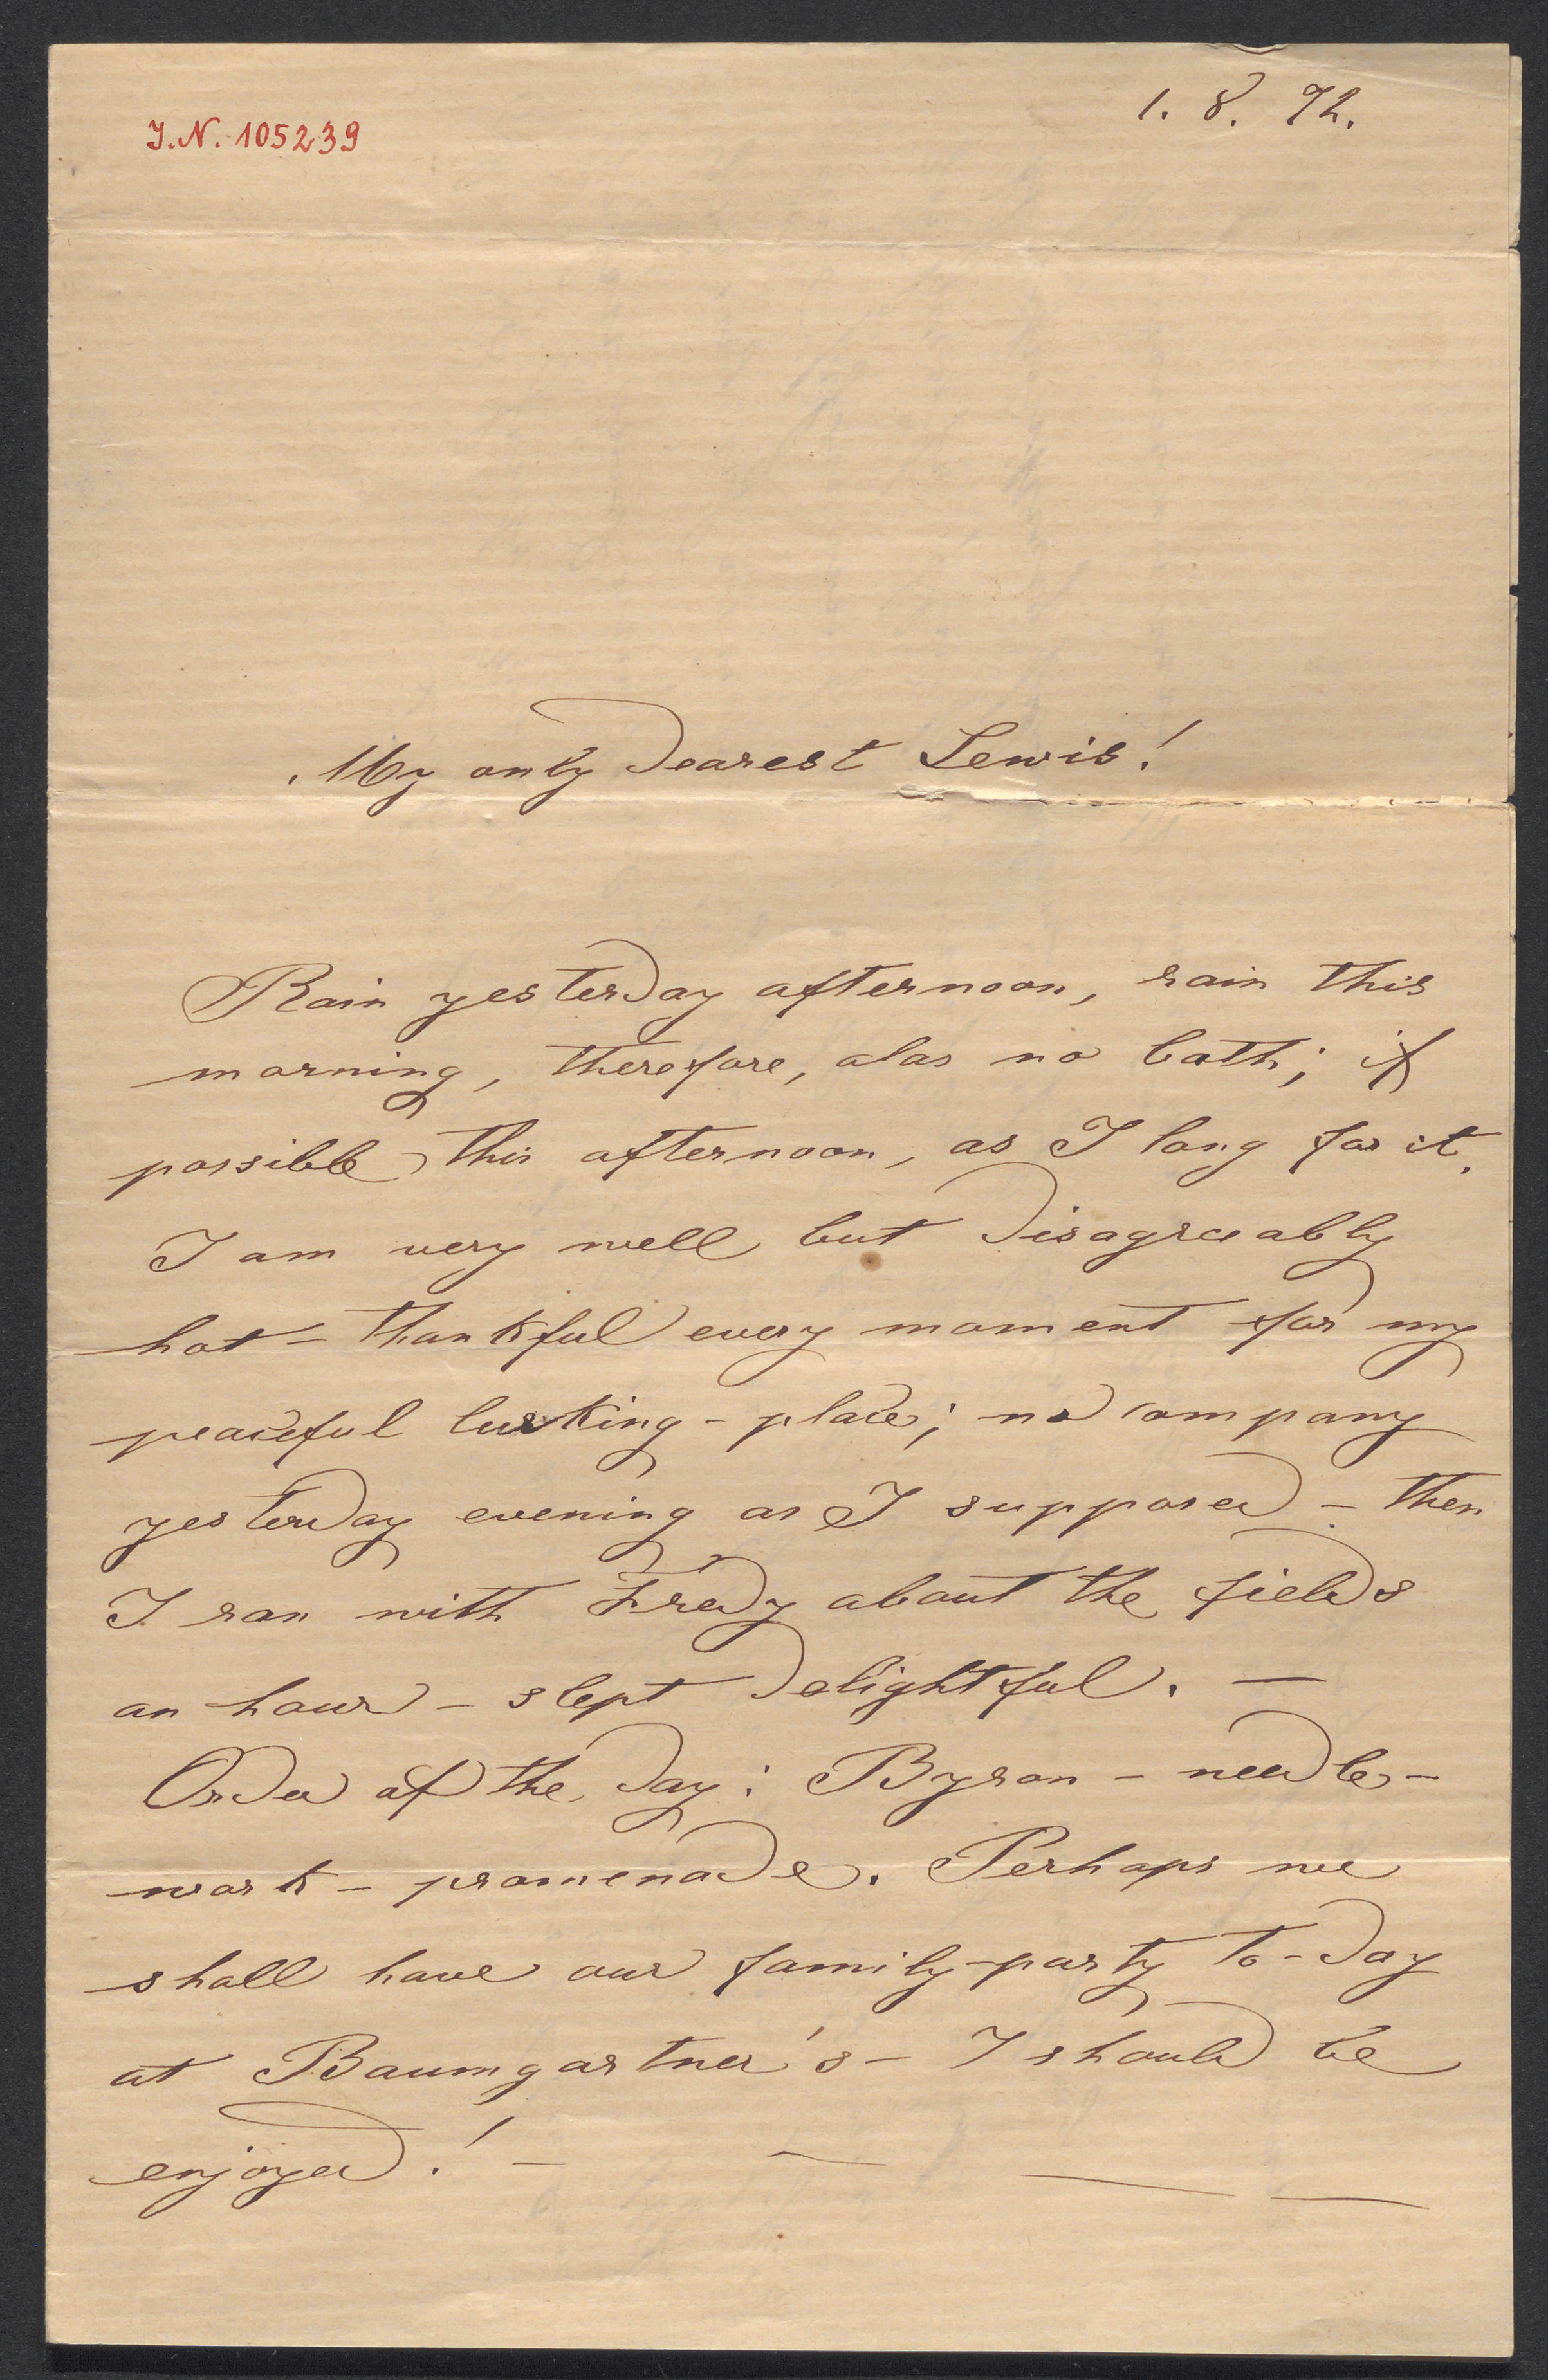 J.N. 105239
1. 8. 92.
My only dearest Lewis!
Rain yesterday afternoon, rain this
morning, therefore, alas no bath; if
possible this afternoon, as I long for it.
I am very well but disagreeably
hot – thankful every moment for my
peaceful lurking-place; no company
yesterday evening as I supposed – then
I ran with Fredy about the fields
an hour – slept delightful. –
Order of the day: Byron – needle-
work – promenade. Perhaps we
shall have our family-party to-day
at Baumgartner's – I should be
enjoyed! – – – –